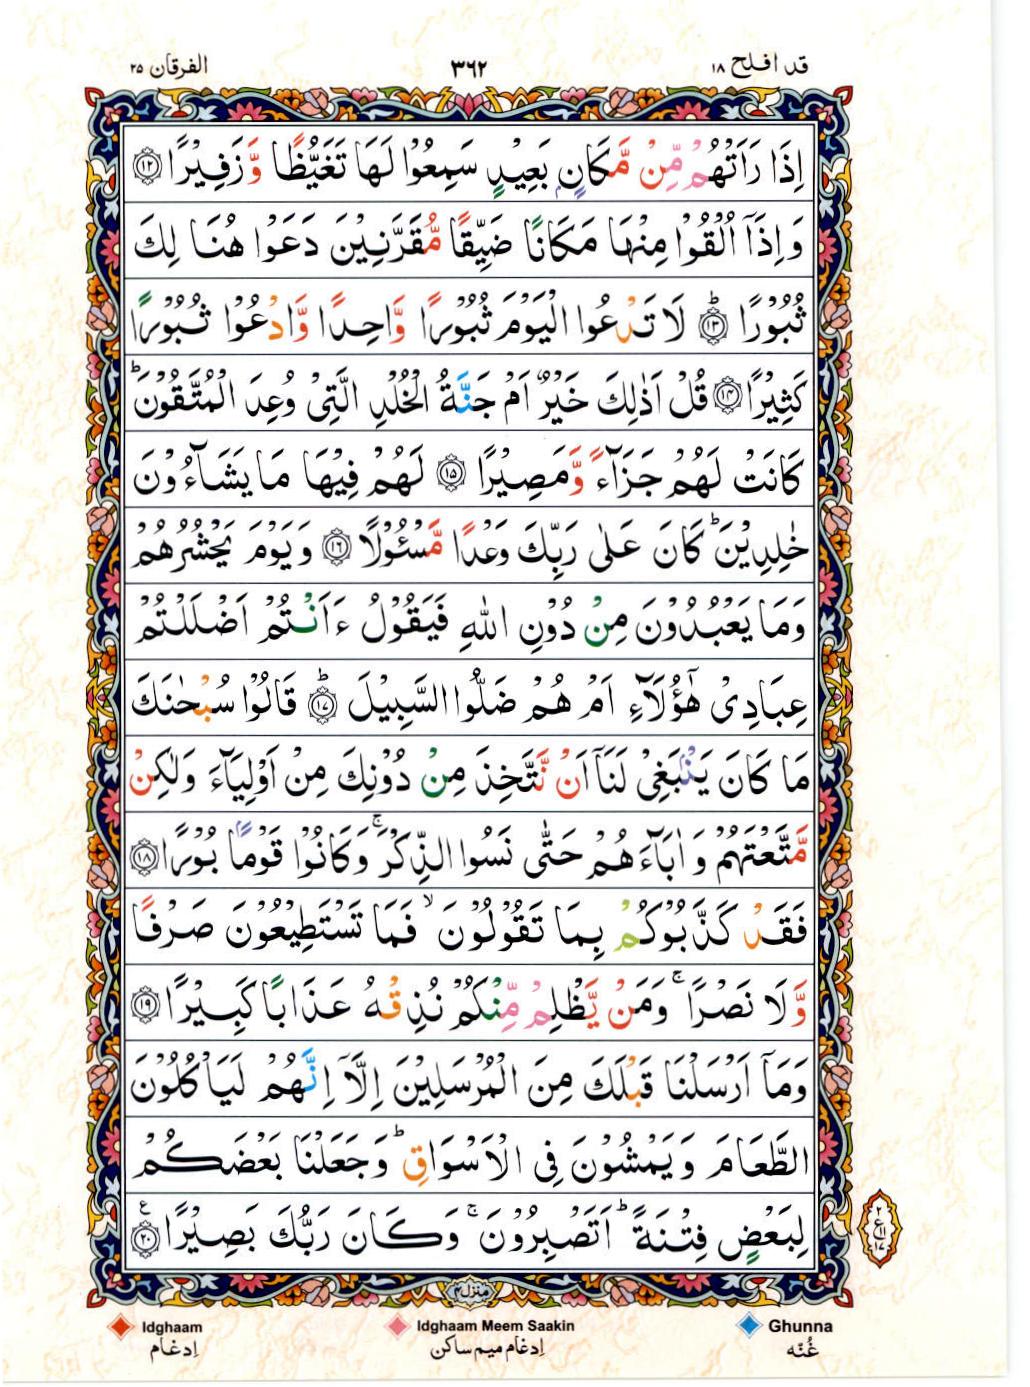 قد افلح ۱۸
۳۶۲
الفرقان ۲۵
اِذَا رَاَتْهُمْ مِّنْ مَّكَانٍۭ بَعِيْدٍ سَمِعُوْا لَهَا تَغَيُّظًا وَّزَفِيْرًا ﴿۱۲﴾
وَاِذَاۤ اُلْقُوْا مِنْهَا مَكَانًا ضَيِّقًا مُّقَرَّنِيْنَ دَعَوْا هُنَا لِكَ
ثُبُوْرًا ؕ﴿۱۳﴾ لَا تَدْعُوا الْيَوْمَ ثُبُوْرًا وَّاحِدًا وَّادْعُوْا ثُبُوْرًا
كَثِيْرًا ﴿۱۴﴾ قُلْ اَذٰلِكَ خَيْرٌ اَمْ جَنَّةُ الْخُلْدِ الَّتِيْ وُعِدَ الْمُتَّقُوْنَ ؕ
كَانَتْ لَهُمْ جَزَآءً وَّمَصِيْرًا ﴿۱۵﴾ لَهُمْ فِيْهَا مَا يَشَآءُوْنَ
خٰلِدِيْنَ ؕ كَانَ عَلٰى رَبِّكَ وَعْدًا مَّسْئُوْلًا ﴿۱۶﴾ وَيَوْمَ يَحْشُرُهُمْ
وَمَا يَعْبُدُوْنَ مِنْ دُوْنِ اللّٰهِ فَيَقُوْلُ ءَاَنْتُمْ اَضْلَلْتُمْ
عِبَادِيْ هٰۤؤُلَآءِ اَمْ هُمْ ضَلُّوا السَّبِيْلَ ؕ﴿۱۷﴾ قَالُوْا سُبْحٰنَكَ
مَا كَانَ يَنْۢبَغِيْ لَنَاۤ اَنْ نَّتَّخِذَ مِنْ دُوْنِكَ مِنْ اَوْلِيَآءَ وَلٰكِنْ
مَّتَّعْتَهُمْ وَاٰبَآءَهُمْ حَتّٰى نَسُوا الذِّكْرَ ۚ وَكَانُوْا قَوْمًۢا بُوْرًا ﴿۱۸﴾
فَقَدْ كَذَّبُوْكُمْ بِمَا تَقُوْلُوْنَ ۙ فَمَا تَسْتَطِيْعُوْنَ صَرْفًا
وَّلَا نَصْرًا ۚ وَمَنْ يَّظْلِمْ مِّنْكُمْ نُذِقْهُ عَذَابًا كَبِيْرًا ﴿۱۹﴾
وَمَاۤ اَرْسَلْنَا قَبْلَكَ مِنَ الْمُرْسَلِيْنَ اِلَّاۤ اِنَّهُمْ لَيَاْكُلُوْنَ
الطَّعَامَ وَيَمْشُوْنَ فِي الْاَسْوَاقِ ؕ وَجَعَلْنَا بَعْضَكُمْ
لِبَعْضٍ فِتْنَةً ؕ اَتَصْبِرُوْنَ ۚ وَكَانَ رَبُّكَ بَصِيْرًا ﴿۲۰﴾ ع
۲
ع
۱۷
منزل ۴
Idghaam
Idghaam Meem Saakin
Ghunna
اِدغام
اِدغام میم ساکن
غُنّه